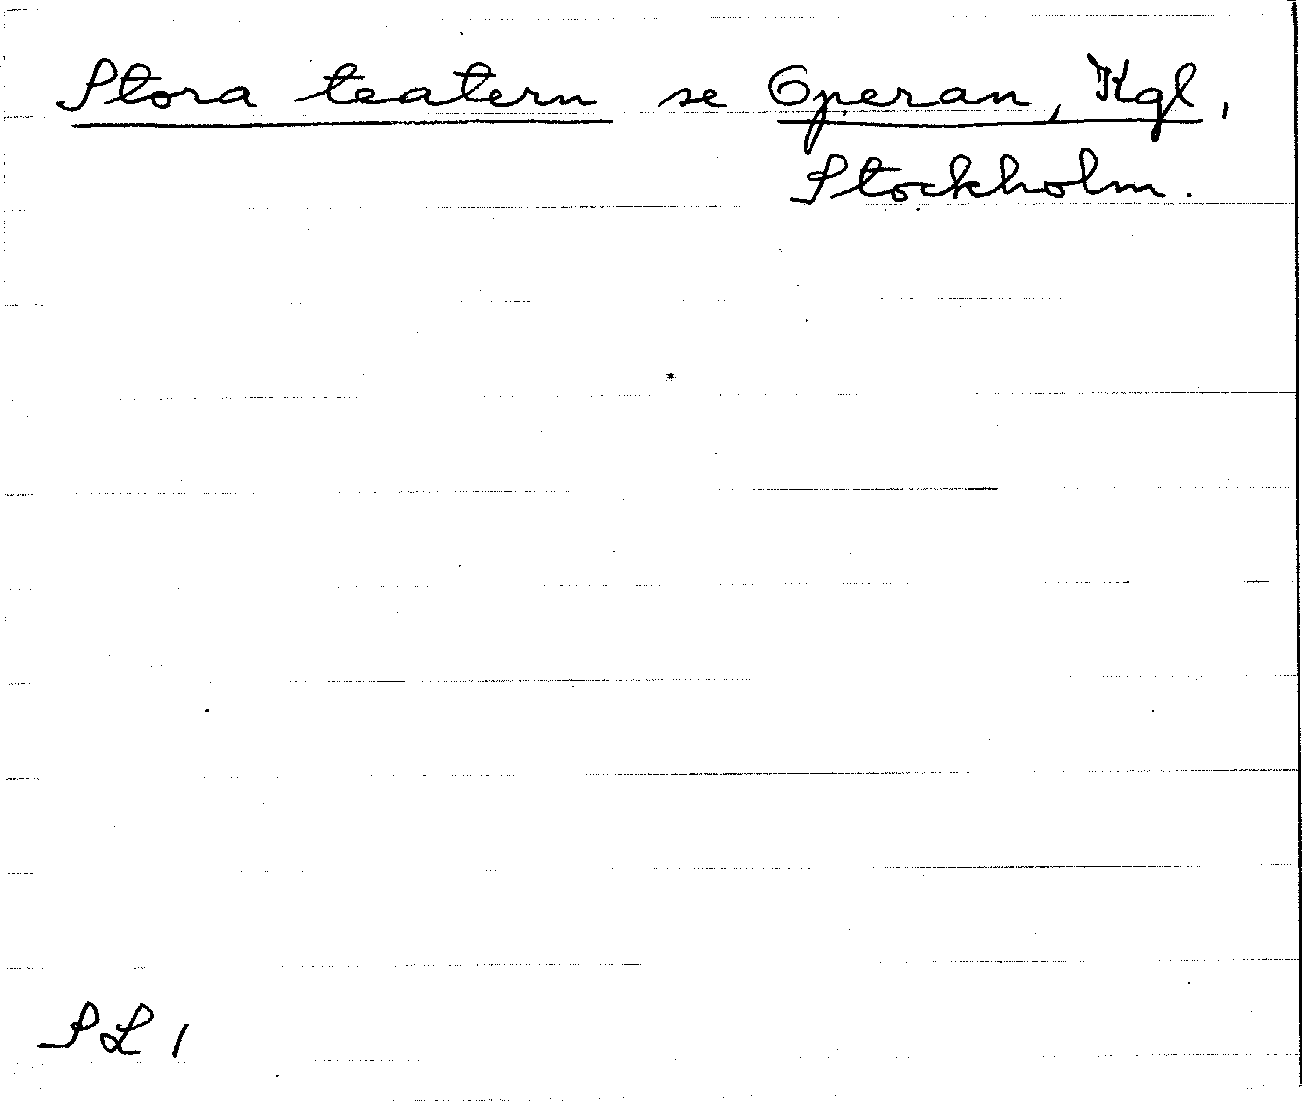 Stora teatern se Operan, Kgl,
Stockholm.
SL 1